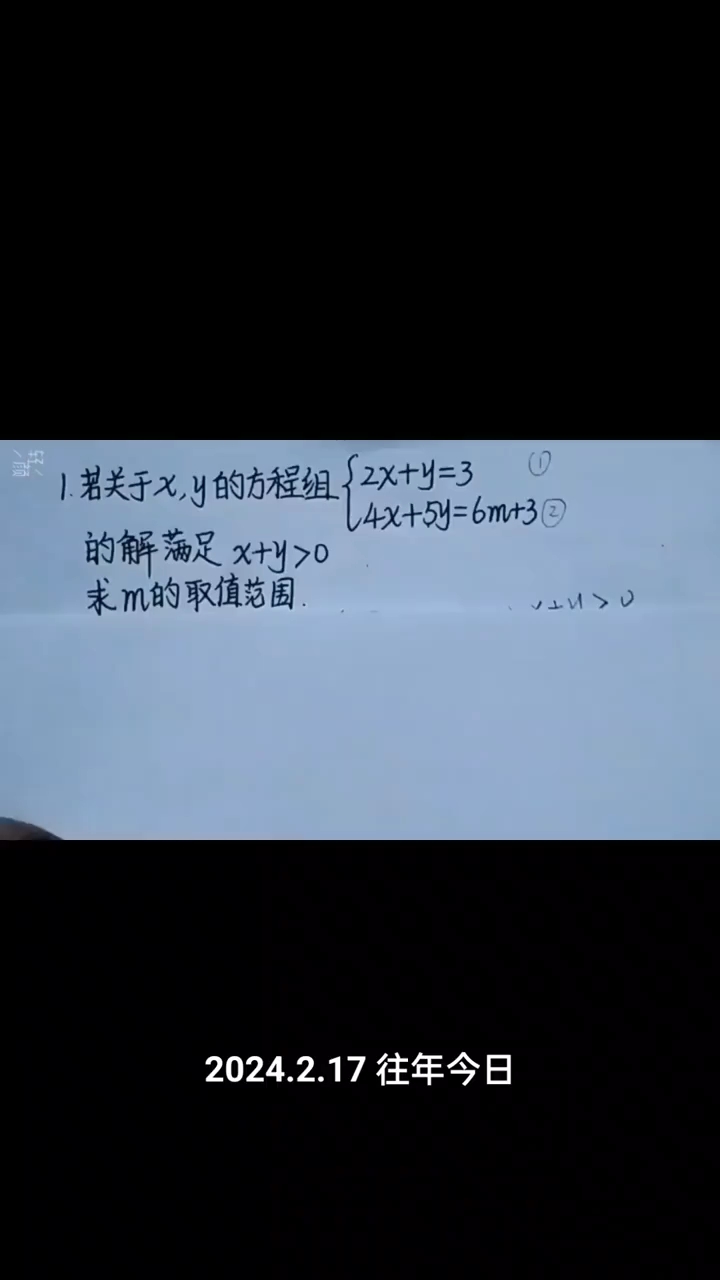 1. 若关于x, y的方程组{2x+y=3 ①
4x+5y=6m+3 ②
的解满足 x+y>0
求m的取值范围.
x+y>0
2024.2.17 往年今日